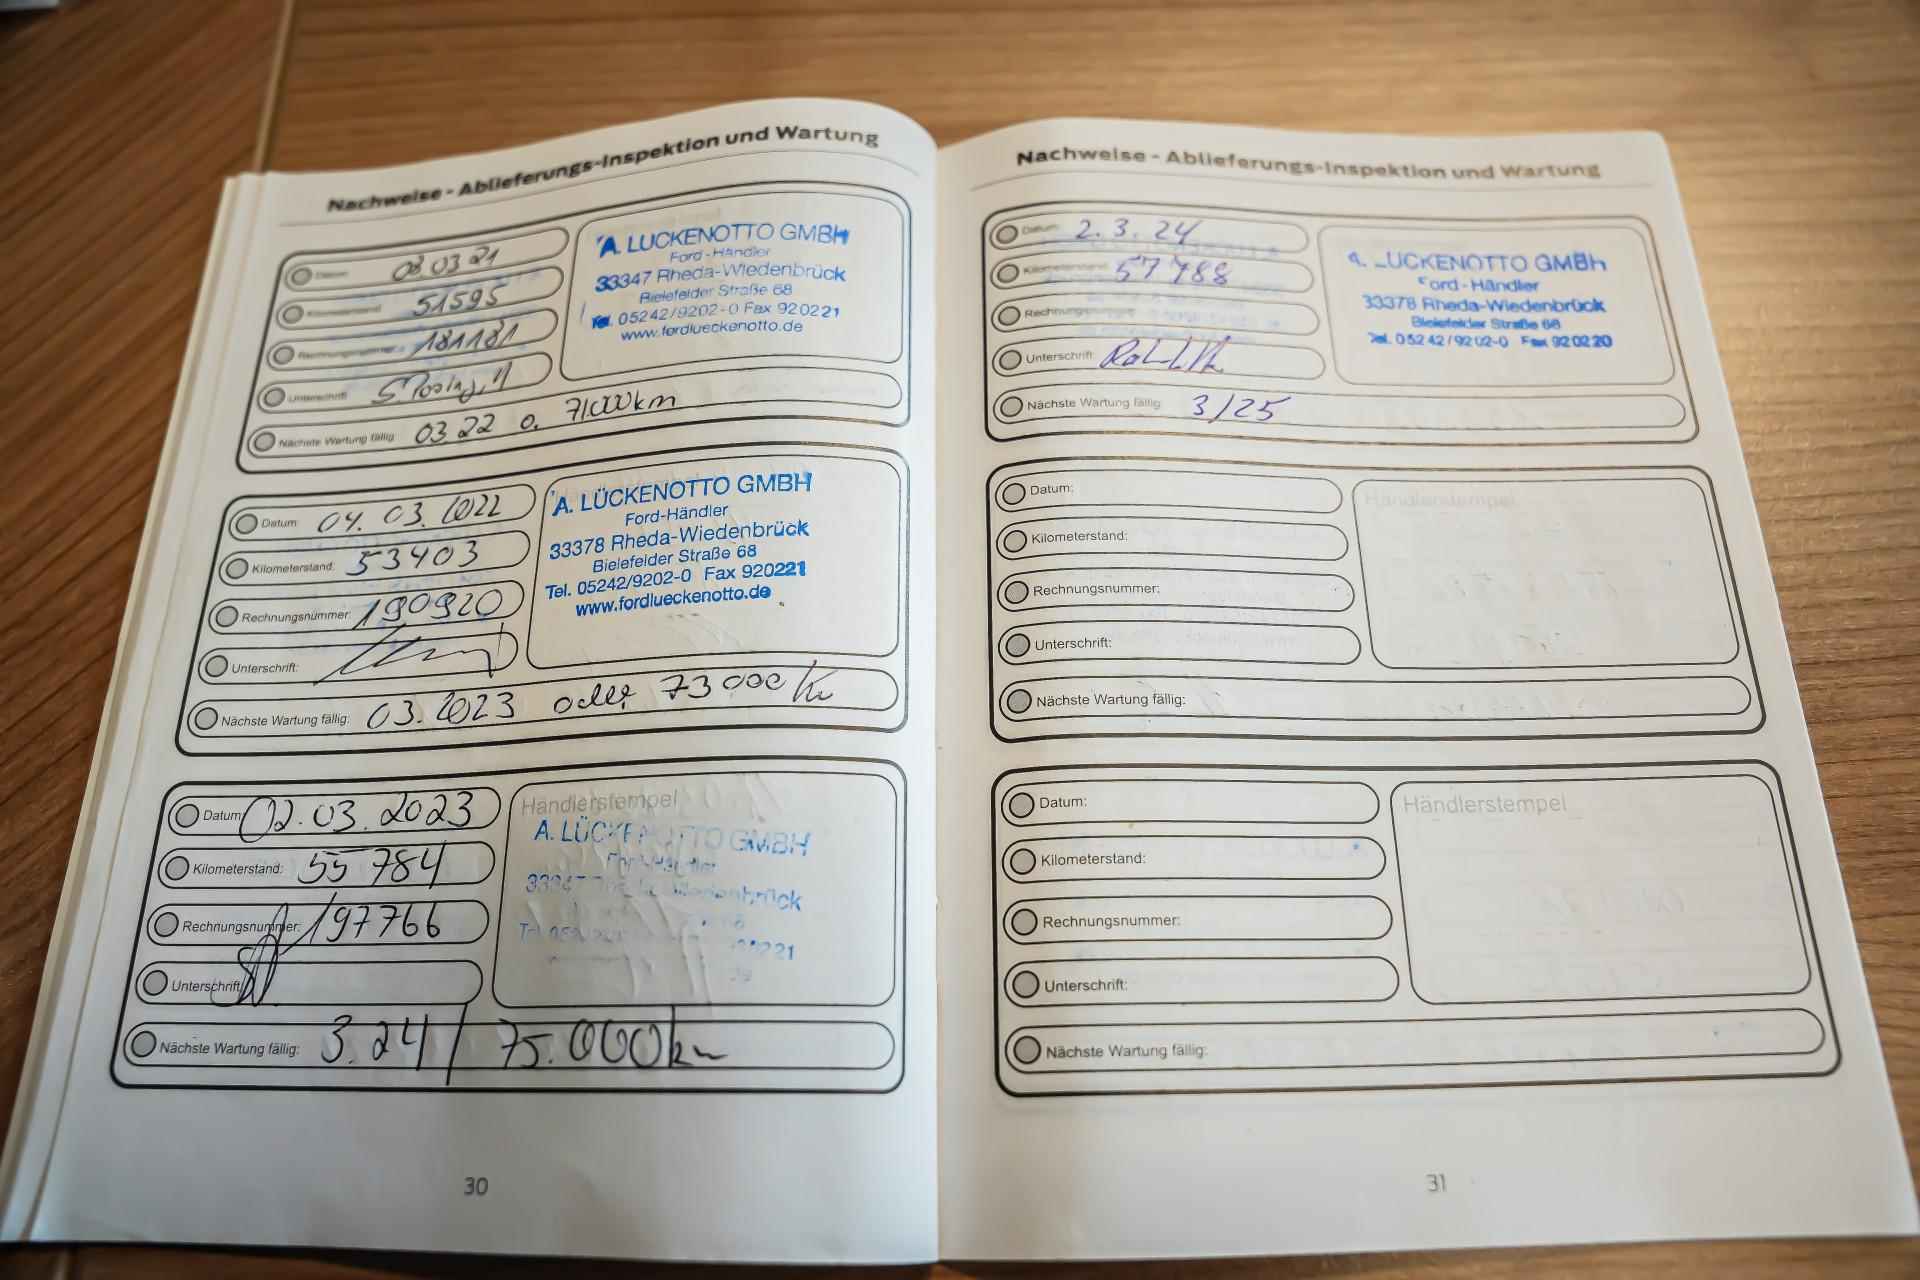 Nachweise - Ablieferungs-Inspektion und Wartung
Datum: 08.03 21
Kilometerstand: 51595
Rechnungsnummer: 181181
Unterschrift:
Nächste Wartung fällig: 03 22 o. 71000km
A. LÜCKENOTTO GMBH
Ford-Händler
33347 Rheda-Wiedenbrück
Bielefelder Straße 68
Tel. 05242/9202-0 Fax 920221
www.fordlueckenotto.de
Datum: 04. 03. 2022
Kilometerstand: 53403
Rechnungsnummer: 190920
Unterschrift:
Nächste Wartung fällig: 03. 2023 oder 73 000 Km
A. LÜCKENOTTO GMBH
Ford-Händler
33378 Rheda-Wiedenbrück
Bielefelder Straße 68
Tel. 05242/9202-0 Fax 920221
www.fordlueckenotto.de
Datum: 02.03.2023
Kilometerstand: 55 784
Rechnungsnummer: 197766
Unterschrift:
Nächste Wartung fällig: 3.24 / 75.000km
Händlerstempel
A. LÜCKENOTTO GMBH
Ford-Händler
33347 Rheda-Wiedenbrück
30
Nachweise - Ablieferungs-Inspektion und Wartung
Datum: 2. 3. 24
Kilometerstand: 57 788
Rechnungsnummer:
Unterschrift:
Nächste Wartung fällig: 3/25
A. LUCKENOTTO GMBH
Ford-Händler
33378 Rheda-Wiedenbrück
Bielefelder Straße 68
Tel. 05242/9202-0 Fax 920220
Datum:
Kilometerstand:
Rechnungsnummer:
Unterschrift:
Nächste Wartung fällig:
Händlerstempel
Datum:
Kilometerstand:
Rechnungsnummer:
Unterschrift:
Nächste Wartung fällig:
Händlerstempel
31